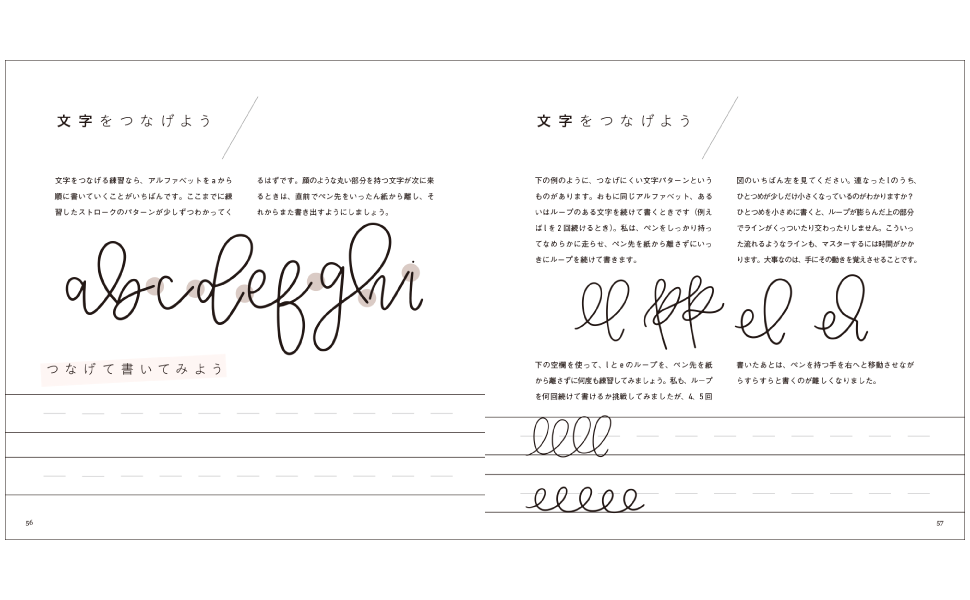 文字をつなげよう
文字をつなげる練習なら、アルファベットをaから
順に書いていくことがいちばんです。ここまでに練
習したストロークのパターンが少しずつわかってく
るはずです。顔のような丸い部分を持つ文字が次に来
るときは、直前でペン先をいったん紙から離し、そ
れからまた書き出すようにしましょう。
abcdefghi
つなげて書いてみよう
56
文字をつなげよう
下の例のように、つなげにくい文字パターンという
ものがあります。おもに同じアルファベット、ある
いはループのある文字を続けて書くときです（例え
ばlを2回続けるとき）。私は、ペンをしっかり持っ
てなめらかに走らせ、ペン先を紙から離さずにいっ
きにループを続けて書きます。
図のいちばん左を見てください。連なったlのうち、
ひとつめが少しだけ小さくなっているのがわかりますか？
ひとつめを小さめに書くと、ループが膨らんだ上の部分
でラインがくっついたり交わったりしません。こういっ
た流れるようなラインも、マスターするには時間がかか
ります。大事なのは、手にその動きを覚えさせることです。
ll pp el eh
下の空欄を使って、lとeのループを、ペン先を紙
から離さずに何度も練習してみましょう。私も、ループ
を何回続けて書けるか挑戦してみましたが、4、5回
書いたあとは、ペンを持つ手を右へと移動させなが
らすらすらと書くのが難しくなりました。
llll
eeeee
57